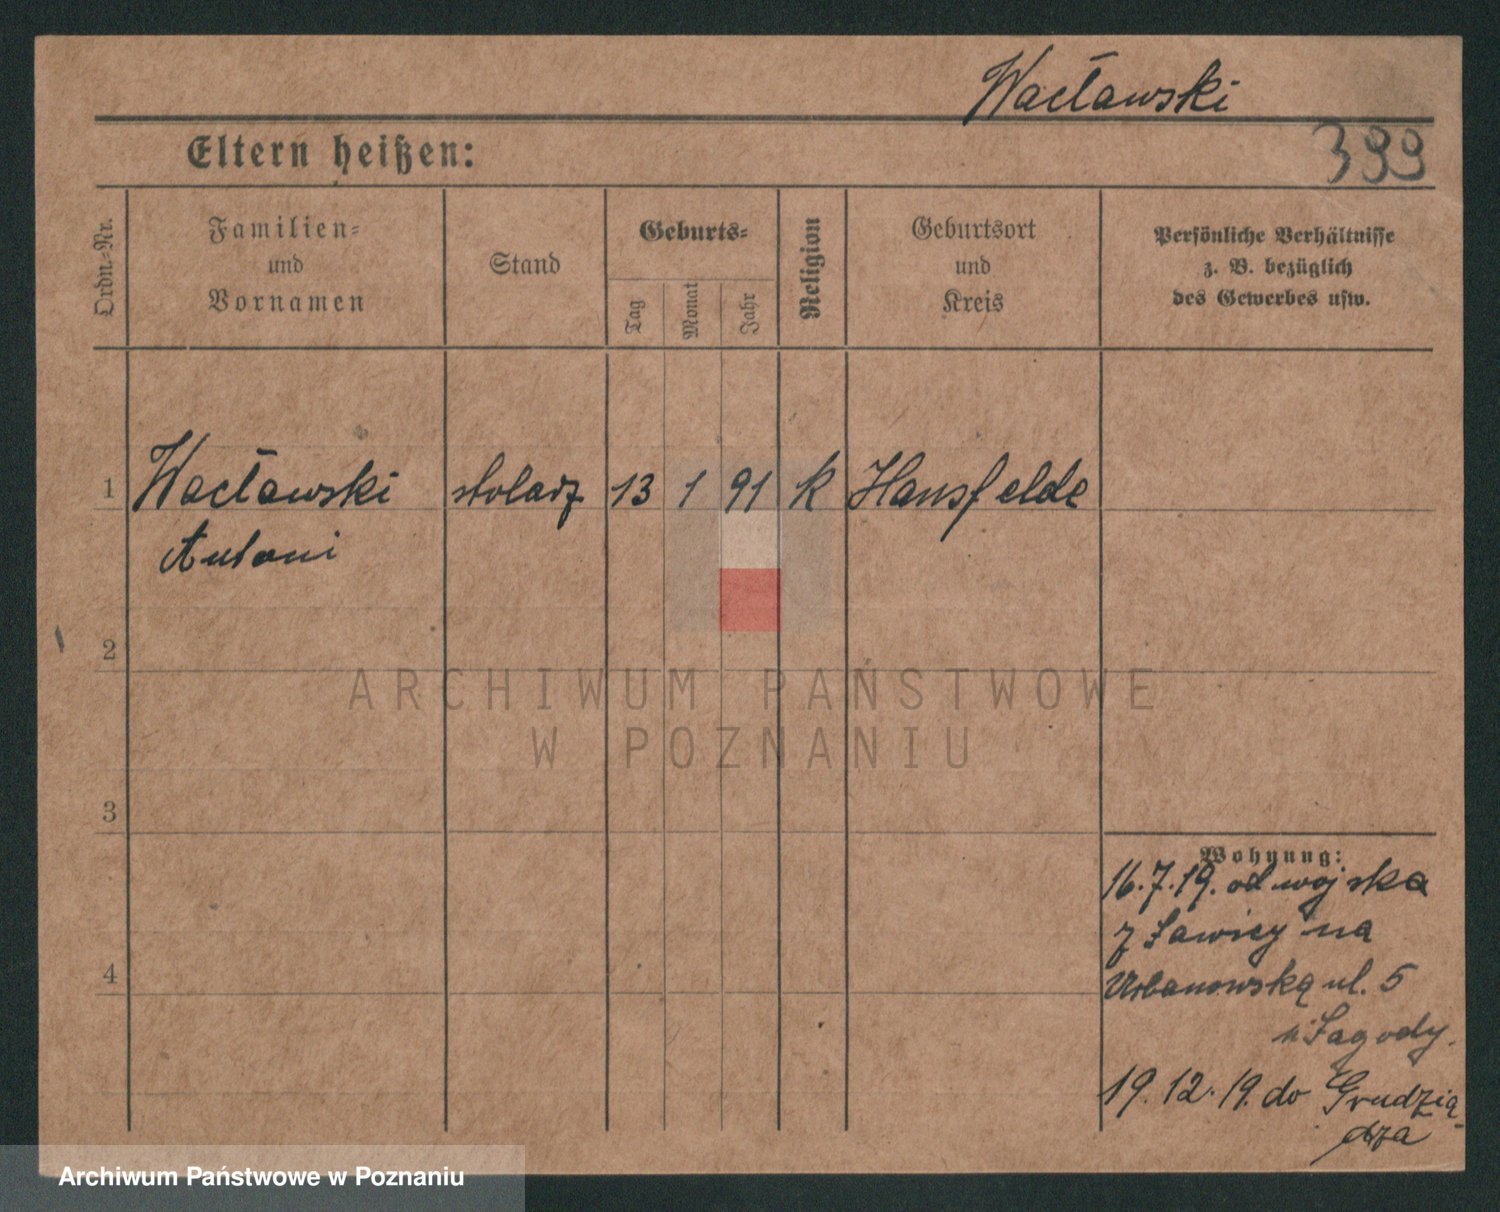 Wacławski
399
Eltern heißen:
Ordn.-Nr.
Familien-
und
Vornamen
Stand
Geburts-
Tag
Monat
Jahr
Religion
Geburtsort
und
Kreis
Persönliche Verhältnisse
z. B. bezüglich
des Gewerbes usw.
1 Wacławski stolarz 13 1 91 k Hansfelde
Antoni
2
ARCHIWUM PAŃSTWOWE
W POZNANIU
3
Wohnung:
16.7.19. od wojska
z Ławicy na
4
Urbanowską ul. 5
u Łagody.
19.12.19. do Grudzią-
dza
Archiwum Państwowe w Poznaniu